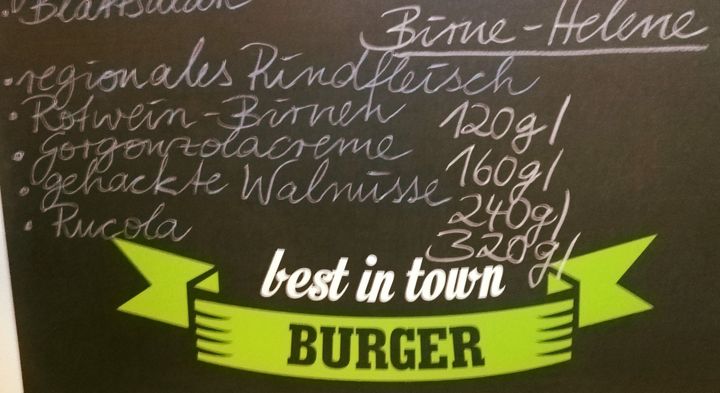 Blattsalat
Birne-Helene
• regionales Rindfleisch
• Rotwein-Birnen
120g/
• Gorgonzolacreme
160g/
• gehackte Walnüsse
240g/
• Rucola
320g/
best in town
BURGER